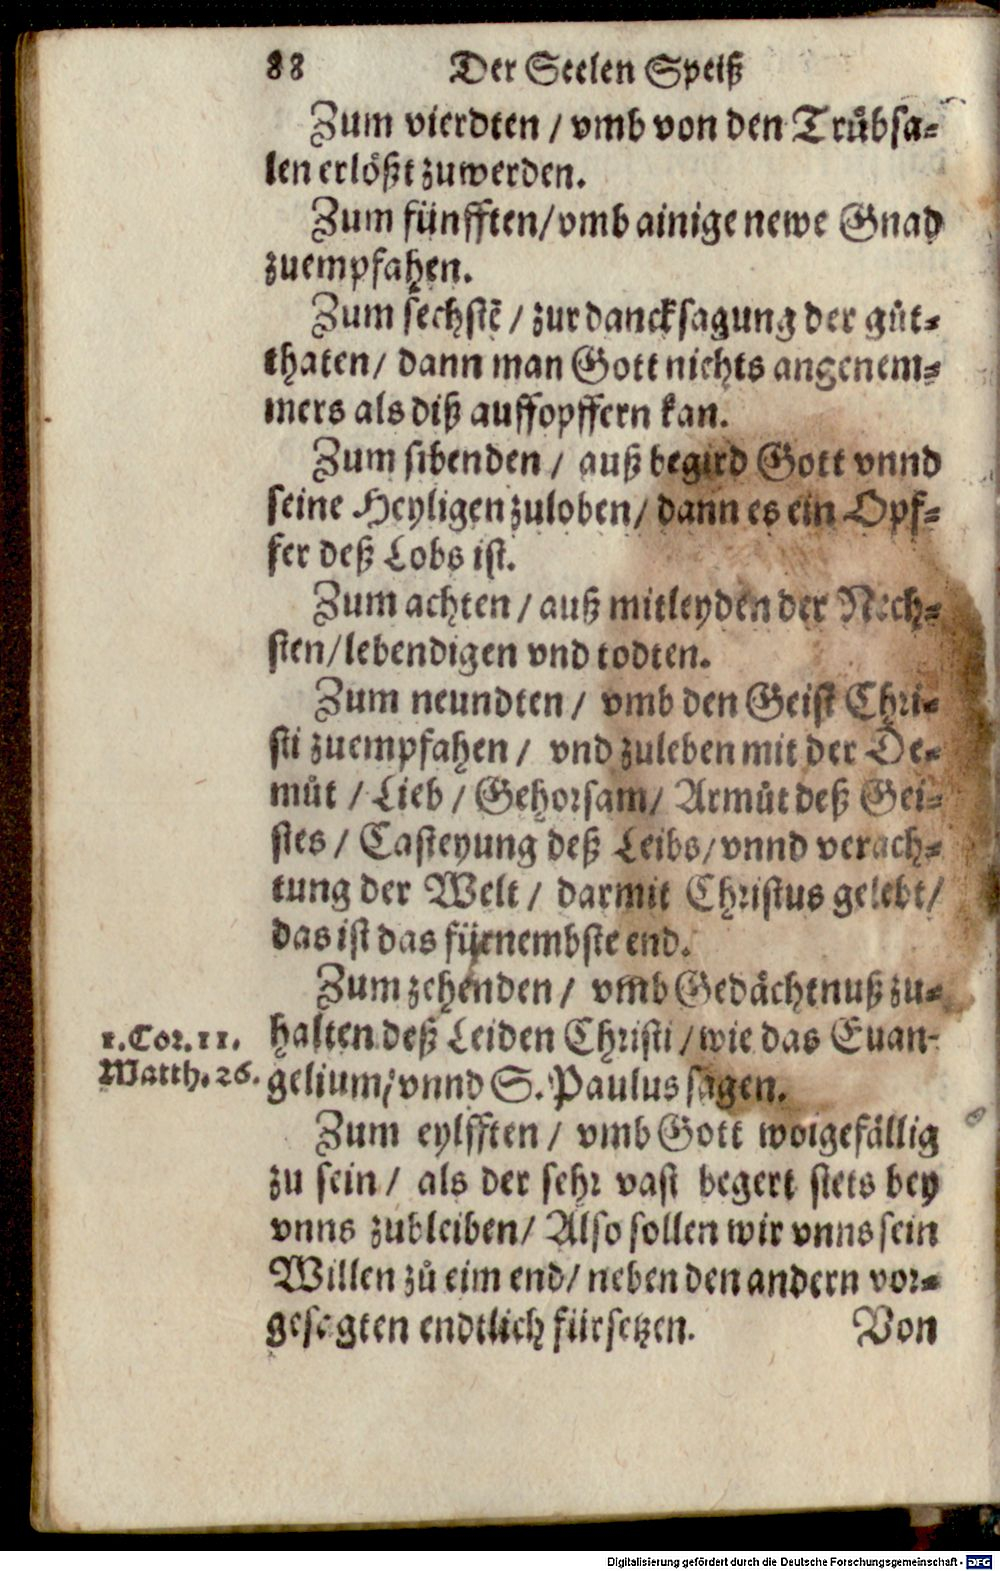 88 Der Seelen Speiß
Zum vierdten / vmb von den Truͤbsa⸗
len erlößt zuwerden.
Zum fünfften/ vmb ainige newe Gnad
zuempfahen.
Zum sechstē / zur dancksagung der gůt⸗
thaten/ dann man Gott nichts angenem⸗
mers als diß auffopffern kan.
Zum sibenden / auß begird Gott vnnd
seine Heyligen zuloben/ dann es ein Opf⸗
fer deß Lobs ist.
Zum achten / auß mitleyden der Nech⸗
sten/ lebendigen vnd todten.
Zum neundten / vmb den Geist Chri⸗
sti zuempfahen / vnd zuleben mit der De⸗
můt / Lieb / Gehorsam/ Armůt deß Gei⸗
stes / Casteyung deß Leibs/ vnnd verach⸗
tung der Welt / darmit Christus gelebt/
das ist das fürnembste end.
Zum zehenden / vmb Gedaͤchtnuß zu⸗
1. Cor. 11. halten deß Leiden Christi / wie das Euan-
Matth. 26. gelium/ vnnd S. Paulus sagen.
Zum eylfften / vmb Gott wolgefällig
zu sein / als der sehr vast begert stets bey
vnns zůbleiben/ Also sollen wir vnns sein
Willen zů eim end/ neben den andern vor⸗
gesagten endtlich fürsetzen. Von
Digitalisierung gefördert durch die Deutsche Forschungsgemeinschaft - DFG